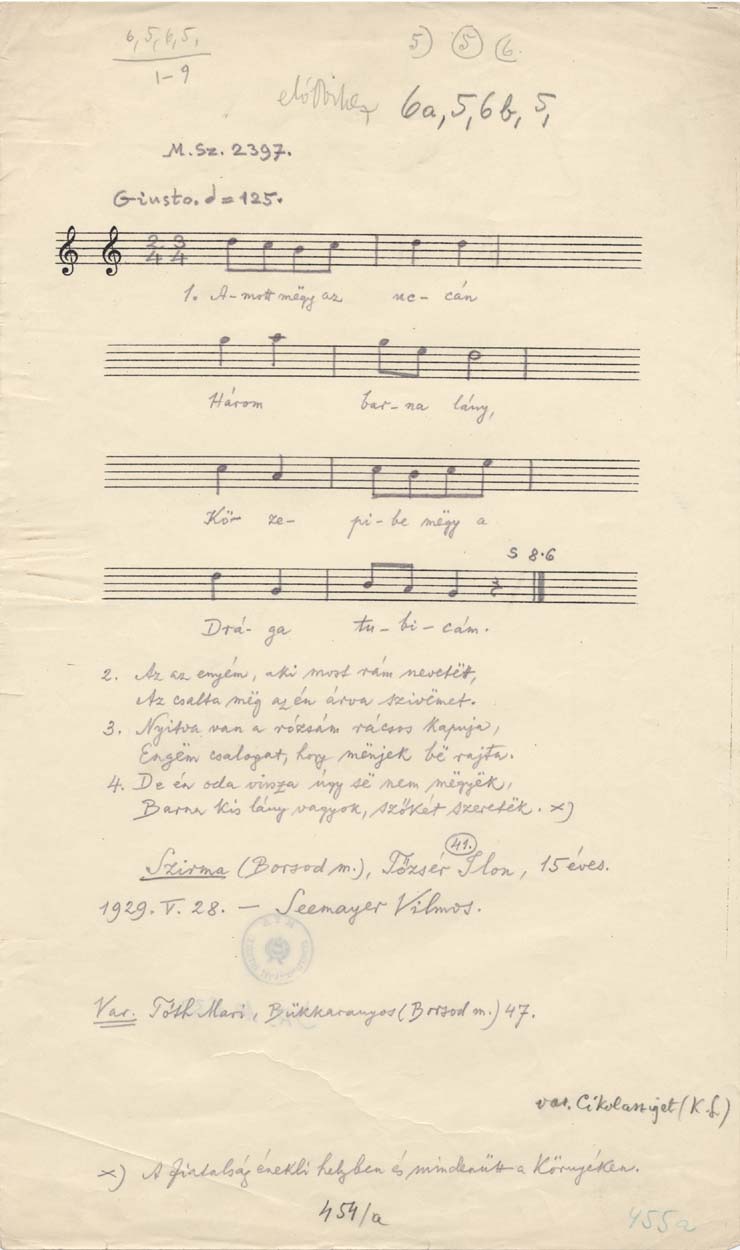 6,5,6,5,
1-9
5) 5 6.
6a, 5, 6b, 5,
M. Sz. 2397.
Giusto. ♩=125.
2 3
4 4
1. A-mott mëgy az uc-cán
Három bar-na lány,
Kö- ze- pi-be mëgy a
S 8·6
Drá-ga tu-bi-cám.
2. Az az enyém, aki most rám nevetëtt,
Az csalta mëg az én árva szivemet.
3. Nyitva van a rózsám rácsos kapuja,
Engëm csalogat, hogy mënjek bë rajta.
4. De én oda vissza úgy së nem mëgyëk,
Barna kis lány vagyok, szőkét szeretëk. x)
41.
Szirma (Borsod m.), Tőzsér Ilon, 15 éves.
1929. V. 28. — Seemayer Vilmos.
Var. Tóth Mari, Bükkaranyos (Borsod m.) 47.
var. Cikolasziget (K. L.)
x) A fiatalság énekli helyben és mindenütt a környéken.
454/a
455a